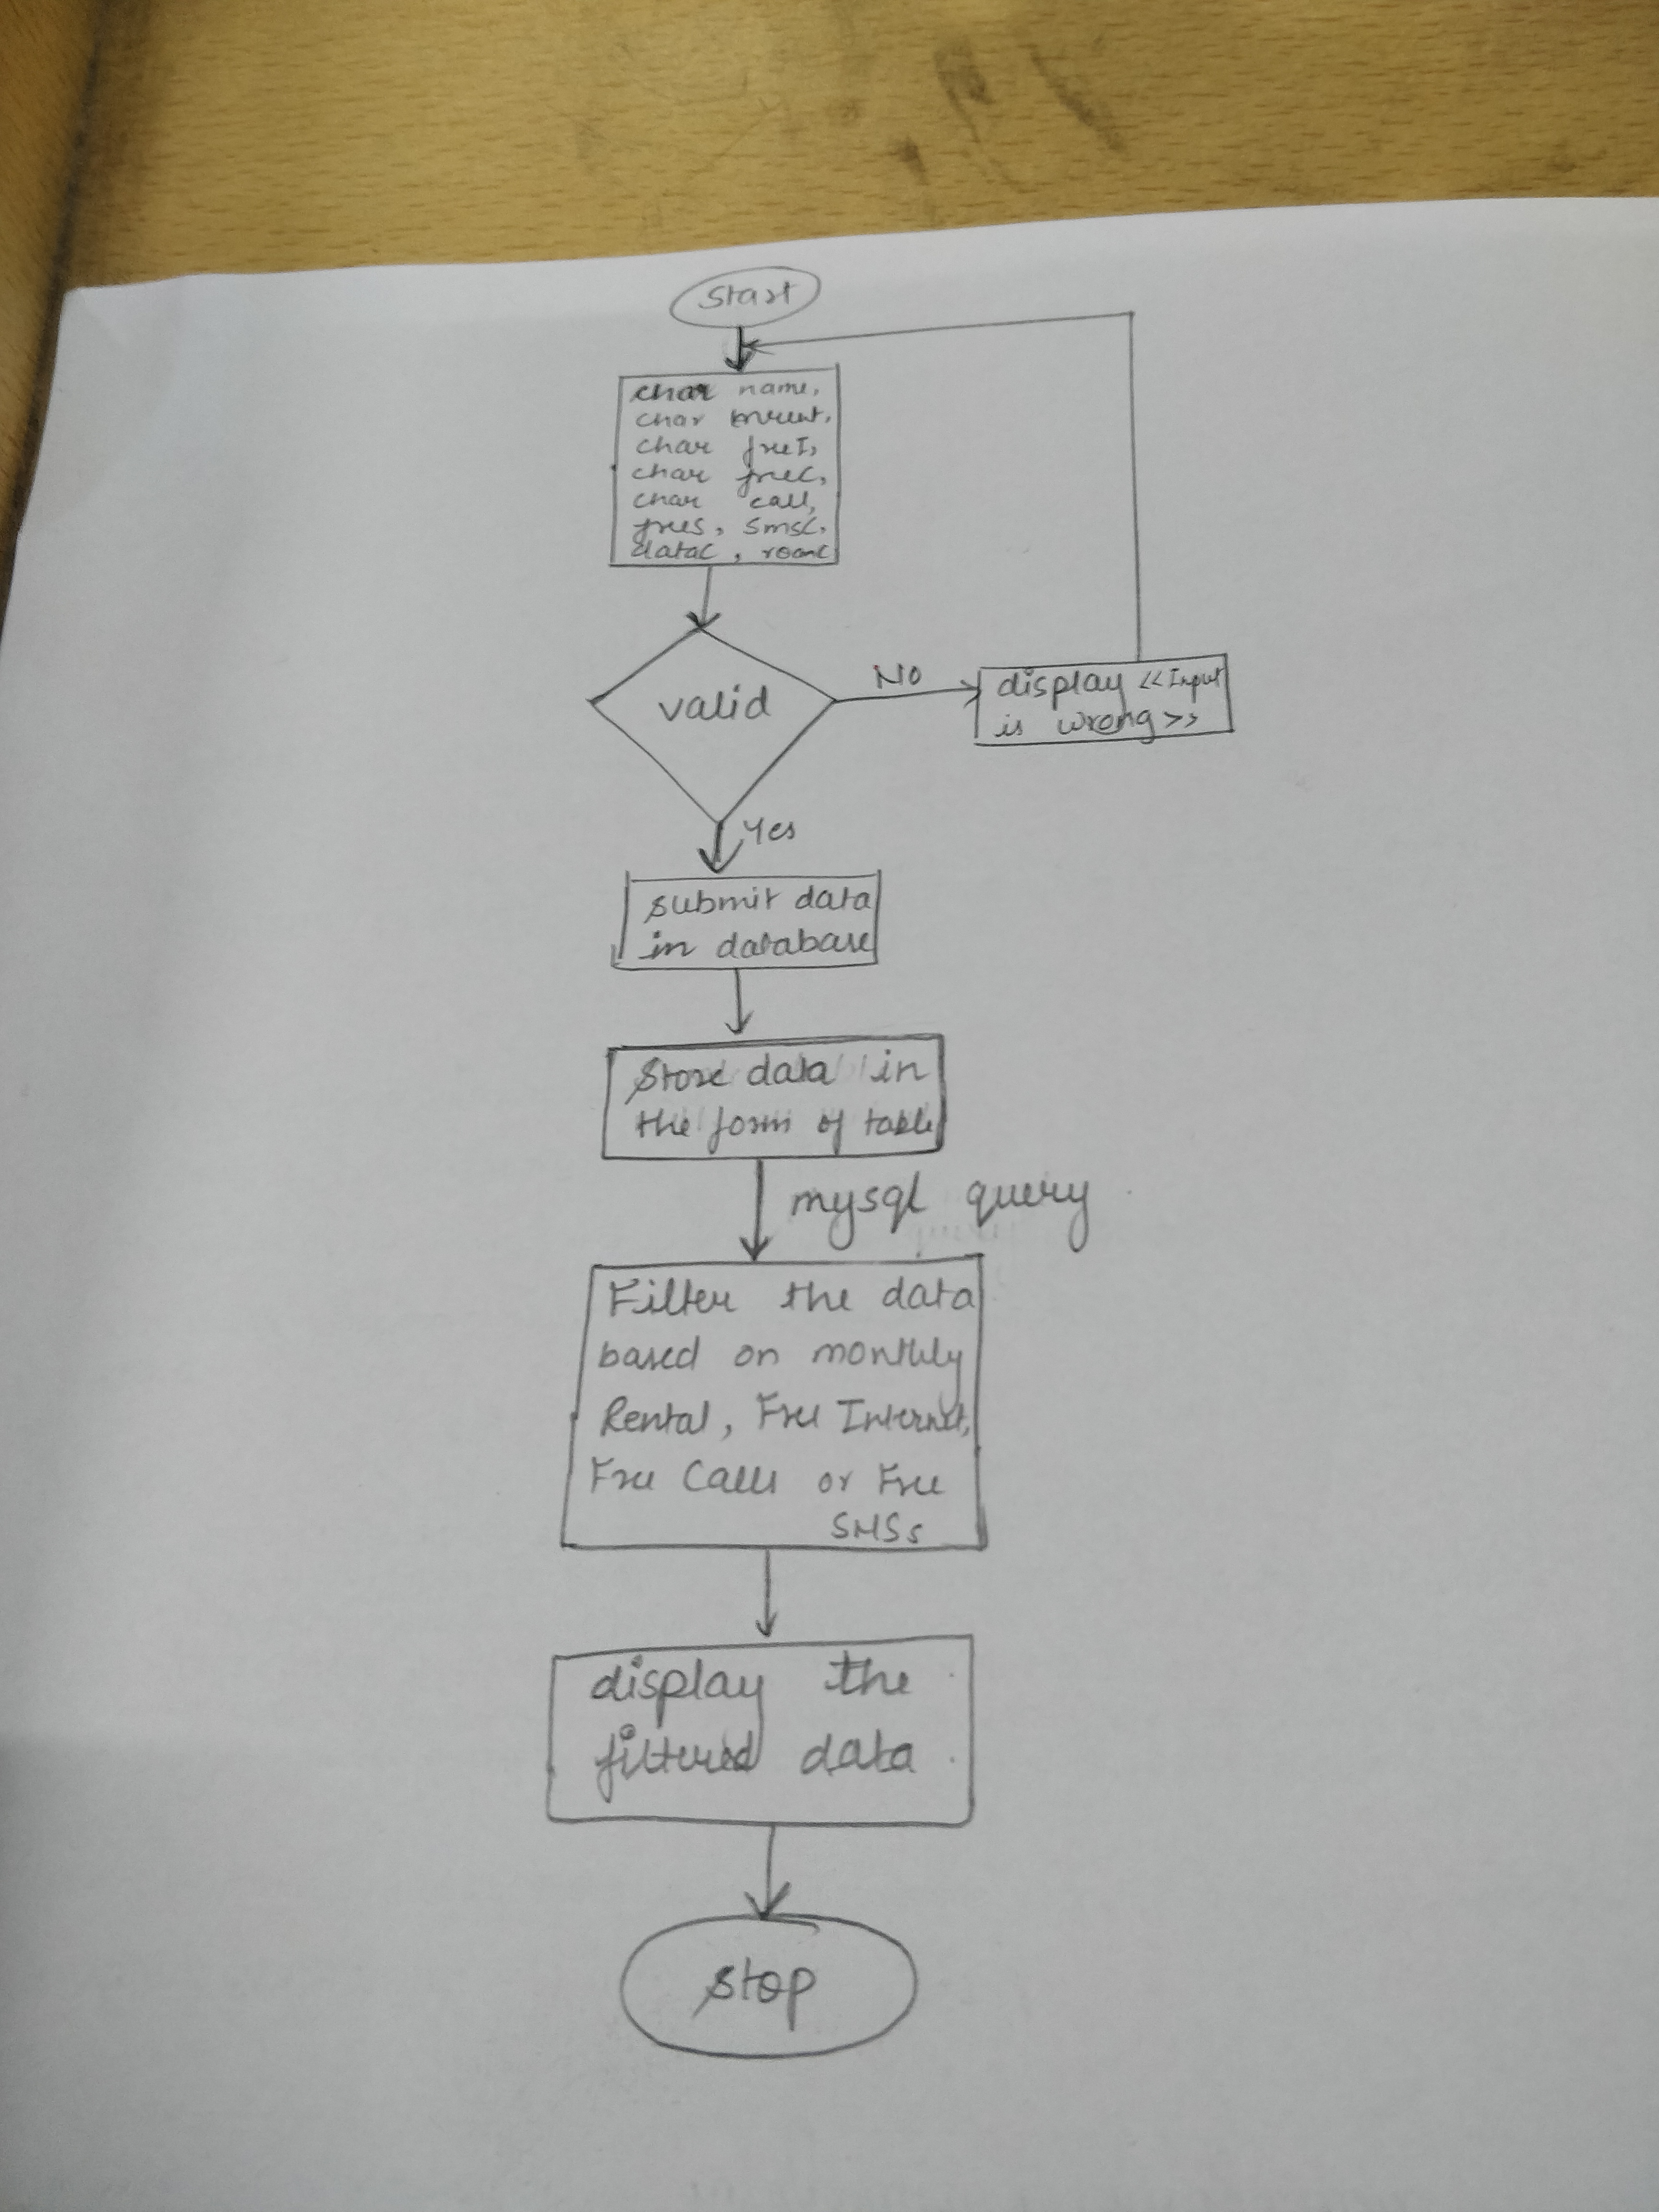 Start
char name,
char mrent,
char freeI,
char freeC,
char call,
freeS, SmsC,
dataC, roamC
valid
No
display <<Input
is wrong>>
Yes
submit data
in database
Store data in
the form of table
mysql query
Filter the data
based on monthly
Rental, Free Internet,
Free Calls or Free
SMSs
display the
filtered data
stop